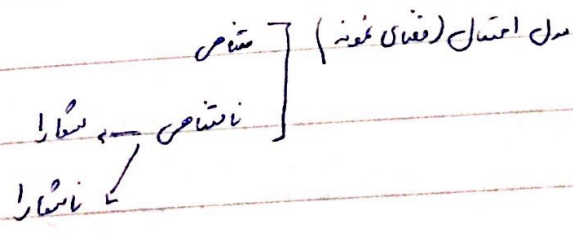 مدل احتمال (فضای نمونه)
متناهی
نامتناهی → شمارا
ناشمارا